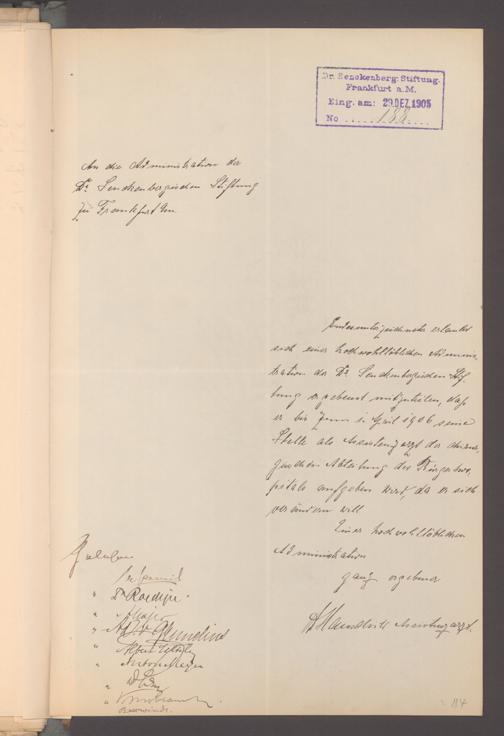 Dr. Senckenberg. Stiftung.
Frankfurt a. M.
Eing. am: 29.DEZ.1905
No ..... 188 ....
An die Administration der
Dr. Senckenbergischen Stiftung
zu Frankfurt a/m.
Endesunterzeichneter erlaubt
sich einer hochwohllöblichen Admini-
stration der Dr. Senckenbergischen Stif-
tung ergebenst mitzuteilen, daß
er bis zum 1. April 1906 seine
Stelle als Assistenzarzt der chirur-
gischen Abteilung des Bürgerhos-
pitals aufgeben wird, da er sich
verändern will.
Einer hochwohllöblichen
Administration
ganz ergebener
Assistenzarzt.
Gelesen
" Dr. Roediger.
" Anton Meyer
117